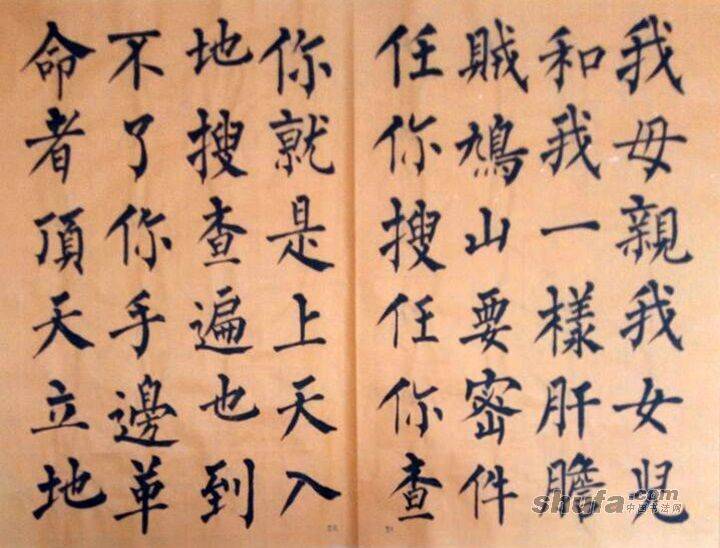 我母親我女兒
和我一樣肝膽
賊鳩山要密件
任你搜任你查
你就是上天入
地搜查遍也到
不了你手邊革
命者頂天立地
shufa.com
中国书法网